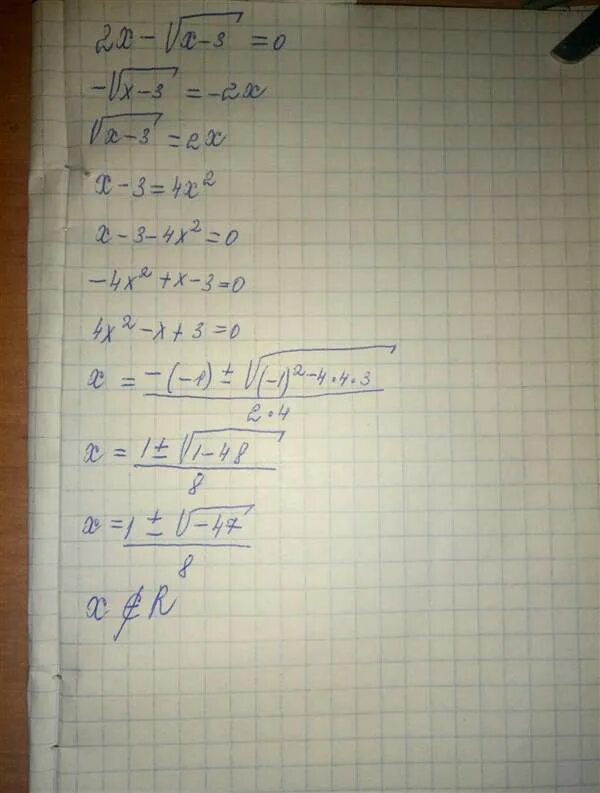 2x - √(x-3) = 0
-√(x-3) = -2x
√(x-3) = 2x
x - 3 = 4x²
x - 3 - 4x² = 0
-4x² + x - 3 = 0
4x² - x + 3 = 0
x = (-(-1) ± √((-1)² - 4·4·3)) / (2·4)
x = (1 ± √(1-48)) / 8
x = (1 ± √(-47)) / 8
x ∉ R